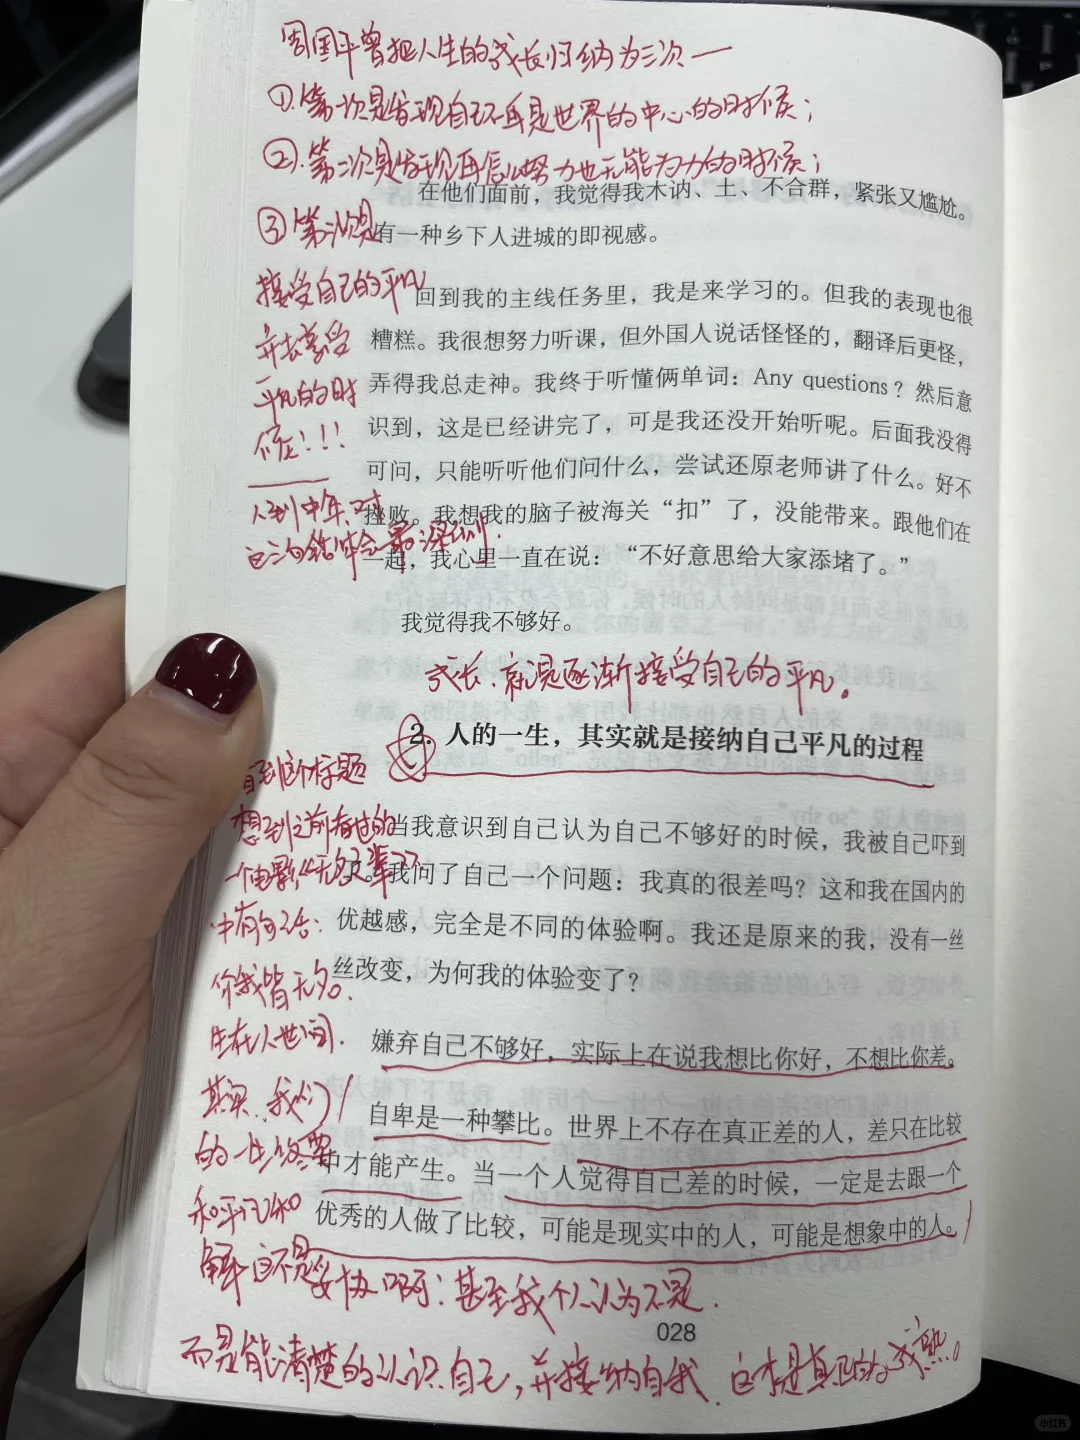 周国平曾把人生的成长归纳为三次一
①.第一次是发现自己不再是世界的中心的时候；
②.第二次是发现再怎么努力也无能为力的时候；
③第三次是
接受自己的平凡
并去享受
平凡的时
候！！！
人到中年,对
这三句话体会最深刻.
在他们面前，我觉得我木讷、土、不合群，紧张又尴尬。
有一种乡下人进城的即视感。
回到我的主线任务里，我是来学习的。但我的表现也很
糟糕。我很想努力听课，但外国人说话怪怪的，翻译后更怪，
弄得我总走神。我终于听懂俩单词：Any questions？然后意
识到，这是已经讲完了，可是我还没开始听呢。后面我没得
可问，只能听听他们问什么，尝试还原老师讲了什么。好不
挫败。我想我的脑子被海关“扣”了，没能带来。跟他们在
一起，我心里一直在说：“不好意思给大家添堵了。”
我觉得我不够好。
成长.就是逐渐接受自己的平凡。
2. 人的一生，其实就是接纳自己平凡的过程
看到这个标题
想到之前看过的
一个电影《无名之辈》
中有句话：
你我皆无名.
生在人世间.
其实,我们
的一生终要
和平凡和
解 这不是妥协啊；甚至我个人认为不是.
而是能清楚的认识自己,并接纳自我.这才是真正的成熟。
当我意识到自己认为自己不够好的时候，我被自己吓到
了。我问了自己一个问题：我真的很差吗？这和我在国内的
优越感，完全是不同的体验啊。我还是原来的我，没有一丝
丝改变，为何我的体验变了？
嫌弃自己不够好，实际上在说我想比你好，不想比你差。
自卑是一种攀比。世界上不存在真正差的人，差只在比较
中才能产生。当一个人觉得自己差的时候，一定是去跟一个
优秀的人做了比较，可能是现实中的人，可能是想象中的人。
028
小红书